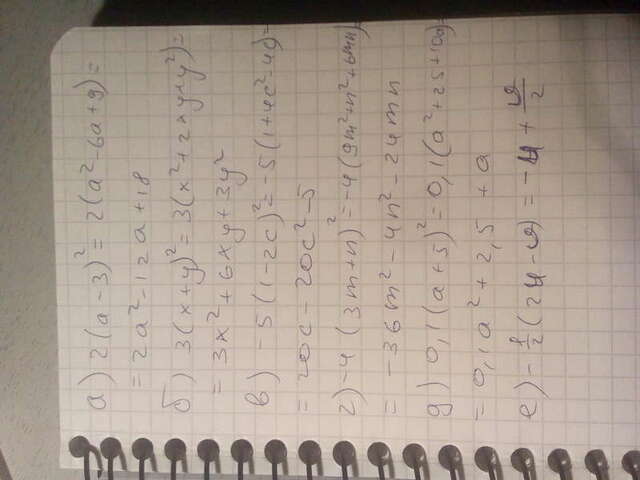 а) 2(a-3)² = 2(a²-6a+9) =
= 2a²-12a+18
б) 3(x+y)² = 3(x²+2xy+y²) =
= 3x²+6xy+3y²
в) -5(1-2c)² = -5(1+4c²-4c) =
= 20c-20c²-5
г) -4(3m+n)² = -4(9m²+n²+6mn) =
= -36m²-4n²-24mn
д) 0,1(a+5)² = 0,1(a²+25+10a) =
= 0,1a²+2,5+a